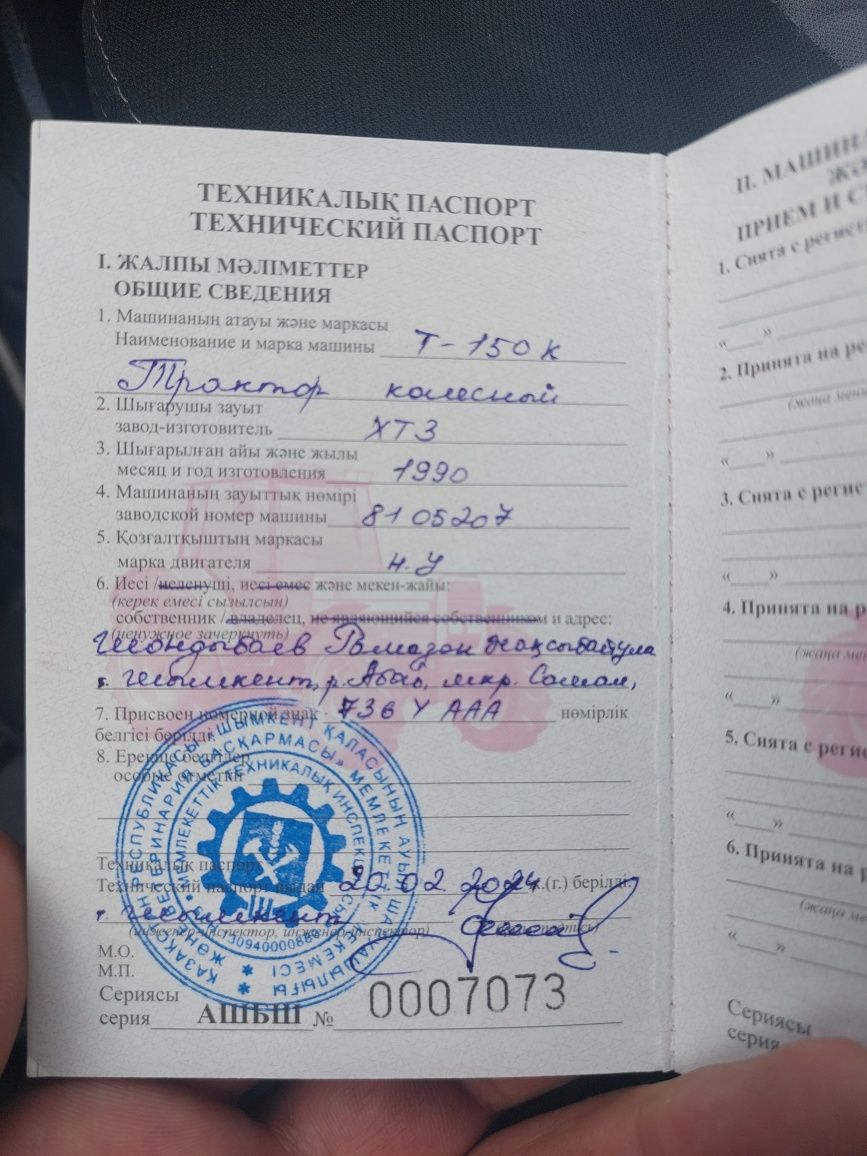 ТЕХНИКАЛЫҚ ПАСПОРТ
ТЕХНИЧЕСКИЙ ПАСПОРТ
I. ЖАЛПЫ МӘЛІМЕТТЕР
ОБЩИЕ СВЕДЕНИЯ
1. Машинаның атауы және маркасы
Наименование и марка машины Т-150К
Трактор колесный
2. Шығарушы зауыт
завод-изготовитель ХТЗ
3. Шығарылған айы және жылы
месяц и год изготовления 1990
4. Машинаның зауыттық нөмірі
заводской номер машины 8105207
5. Қозғалтқыштың маркасы
марка двигателя Н.У
6. Иесі /иеленуші, иесі емес және мекен-жайы:
(керек емесі сызылсын)
собственник /владелец, не являющийся собственником и адрес:
(ненужное зачеркнуть)
г. Шымкент, р. Абай, мкр.
7. Присвоен номерной знак 736 У ААА нөмірлік
белгісі берілді.
8. Ерекше белгілер
особые отметки
Техникалық паспорт
Технический паспорт выдан 20.02.2024 ж.(г.) берілді.
г. Шымкент
(инженер-инспектор, инженер-инспектор)
М.О.
М.П.
Сериясы
серия АШБШ № 0007073
II. МАШИНА
ПРИЕМ И С
1. Снята с регистр
« »
2. Принята на ре
(жаңа мекен
« »
3. Снята с регис
« »
4. Принята на р
(жаңа ме
« »
5. Снята с реги
« »
6. Принята на
(жаңа
« »
Сериясы
серия